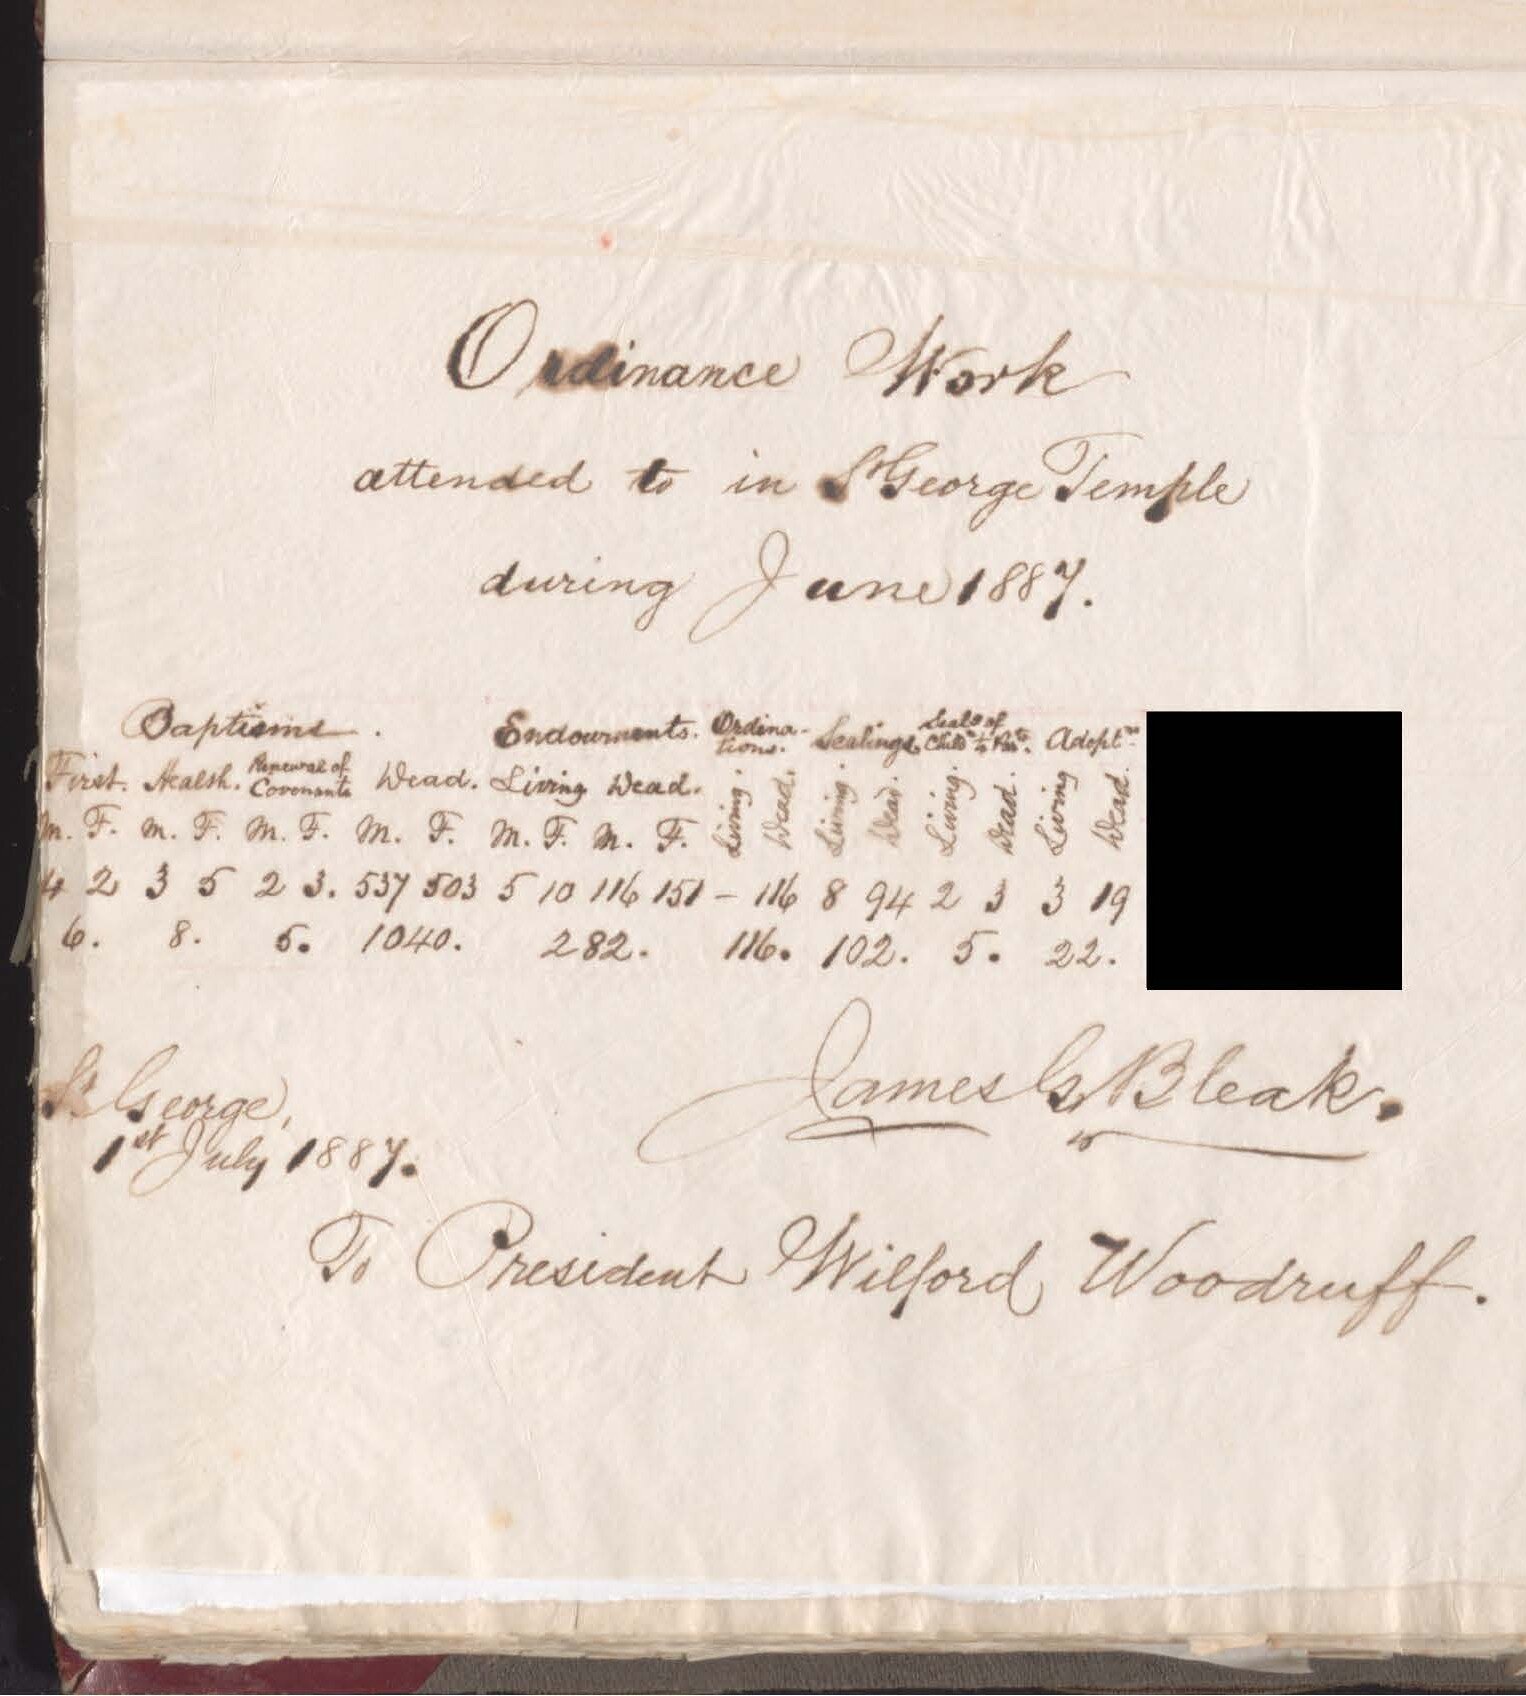 Ordinance Work
attended to in St George Temple
during June 1887.
Baptisms. Endowments. Ordina-tions. Sealings. Seals of Childn to Parts. Adoptns
First. Health. Renewal of Covenants Dead. Living Dead. Living. Dead. Living. Dead. Living. Dead. Living Dead.
M. F. M. F. M. F. M. F. M. F. M. F.
4 2 3 5 2 3. 537 503 5 10 116 151 – 116 8 94 2 3 3 19
6. 8. 5. 1040. 282. 116. 102. 5. 22.
James G. Bleak.
St George,
1st July 1887.
To President Wilford Woodruff.